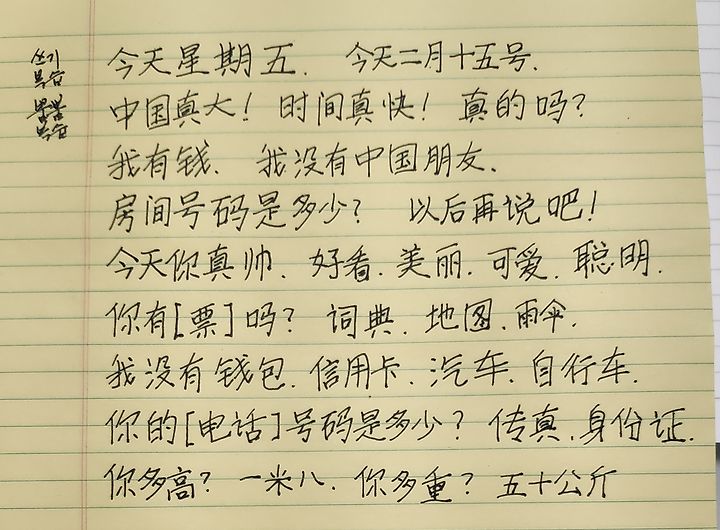 쓰기
복습
복습
今天星期五. 今天二月十五号.
中国真大! 时间真快! 真的吗?
我有钱. 我没有中国朋友.
房间号码是多少? 以后再说吧!
今天你真帅. 好看. 美丽. 可爱. 聪明.
你有[票]吗? 词典. 地图. 雨伞.
我没有钱包. 信用卡. 汽车. 自行车.
你的[电话]号码是多少? 传真. 身份证.
你多高? 一米八. 你多重? 五十公斤